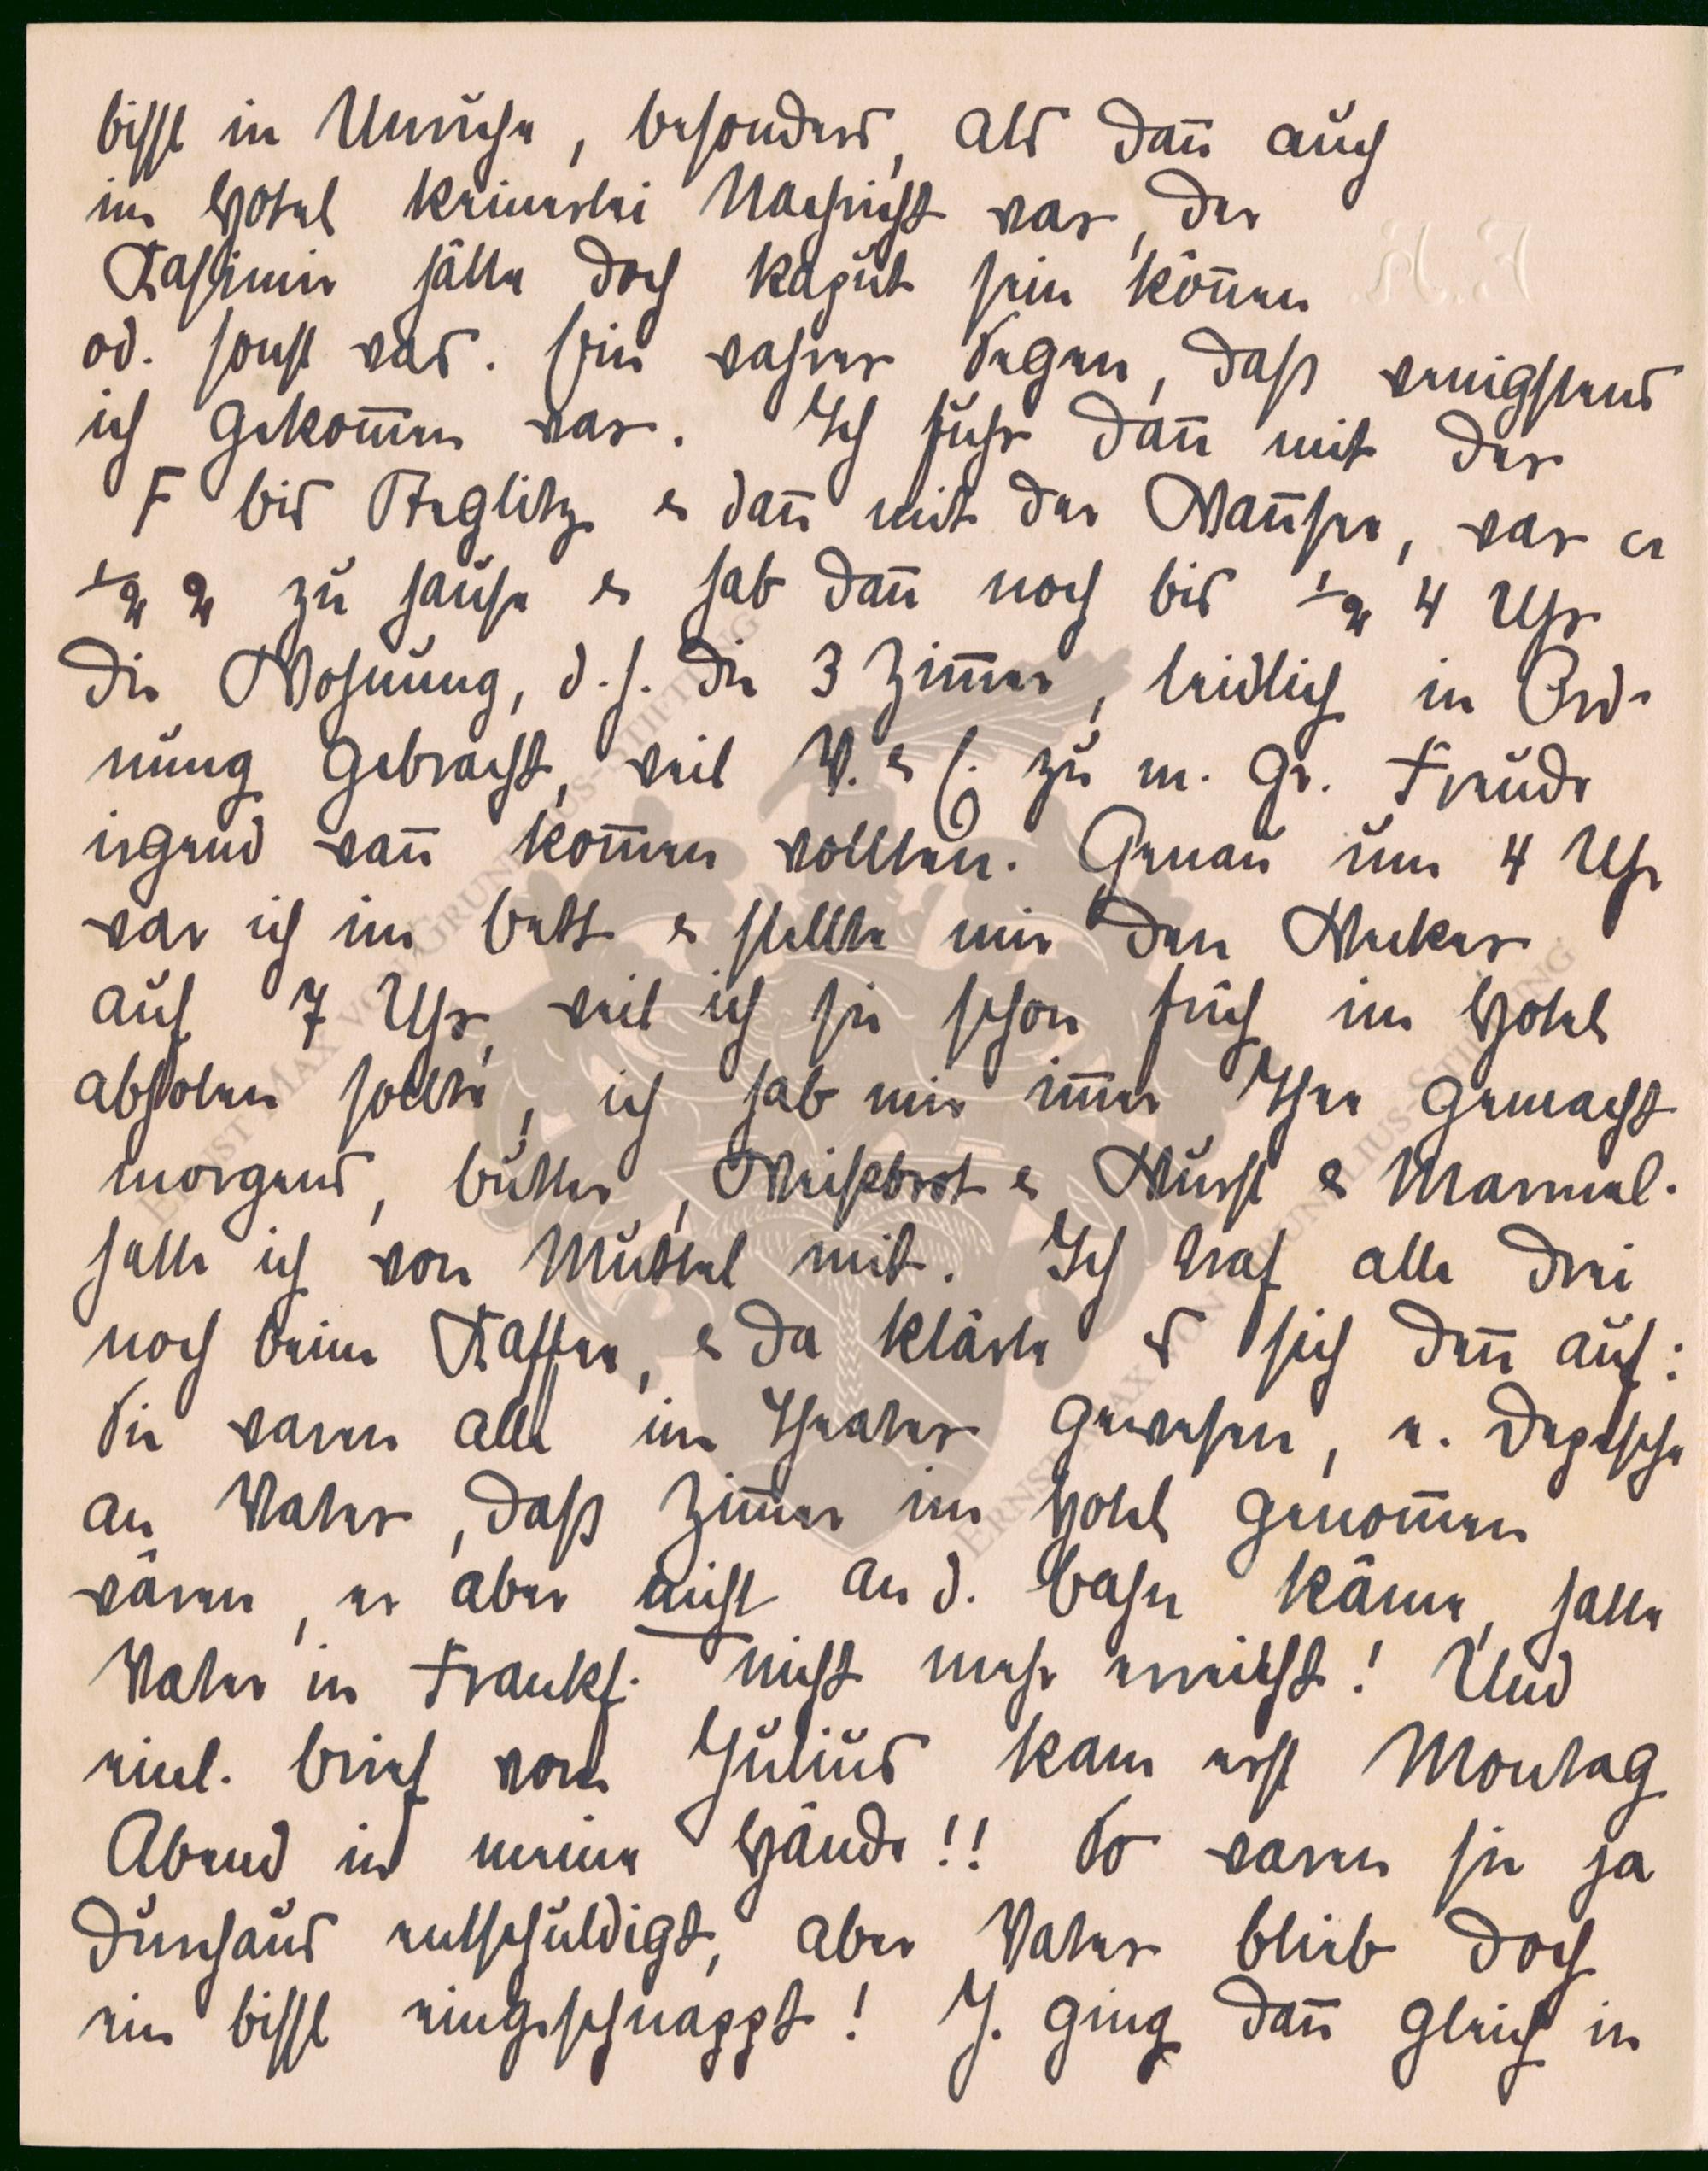 bissl in Unruhe, besonders, als dan̄ auch
im Hotel keinerlei Nachricht war, der
Kasimir hätte doch kaput sein kön̄en
od. sonst was. Ein wahrer Segen, daß wenigstens
ich gekom̄en war. Ich fuhr dan̄ mit der
F bis Steglitz & dan̄ mit der Wan̄see, war ca
½ 2 zu hause & hab dan̄ noch bis ½ 4 Uhr
die Wohnung, d.h. die 3 Zim̄er, leidlich in Ord-
nung gebracht, weil V. & E. zu m. gr. Freude
irgend wan̄ kom̄en wollten. Genau um 4 Uhr
war ich im Bett & stellte mir den Wecker
auf 7 Uhr, weil ich sie schon früh im Hotel
abholen sollte, ich hab mir im̄er Thee gemacht
morgens, Butter, Weißbrot & Wurst & Marmel.
hatte ich von Muttel mit. Ich traf alle drei
noch beim Kaffee, & da klärte es sich den̄ auf:
Sie waren alle im Theater gewesen, e. Depesche
an Vater, daß Zim̄er im Hotel genom̄en
wären, er aber nicht an d. Bahn käme, hatte
Vater in Frankf. nicht mehr erreicht! Und
ein Brief von Julius kam erst Montag
Abend in meine Hände!! So waren sie ja
durchaus entschuldigt, aber Vater blieb doch
ein bissl eingeschnappt! J. ging dan̄ gleich in
F. K.
ERNST MAX VON GRUNELIUS-STIFTUNG
ERNST MAX VON GRUNELIUS-STIFTUNG